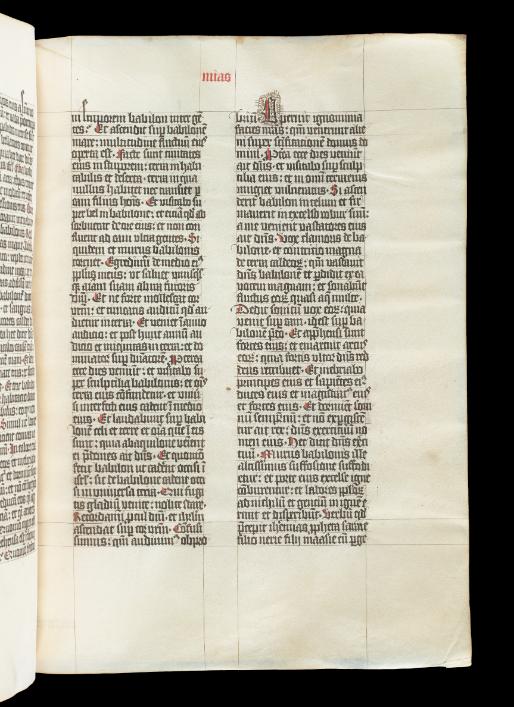 mias
in stuporem babilon inter gē
tes. Et ascendit sup babilonē
mare: multitudine fluctuū eius
operta est. Facte sunt ciuitates
eius in stuporem: terra inhabi
tabilis et deserta: terra in qua
nullus habitet nec transeat p
eam filius hominis. Et uisitabo su
per bel in babilone: et eiciā qd ab
sorbuerat de ore eius: et non con
fluent ad eum ultra gentes. Si
quidem et murus babilonis
corruet. Egredimini de medio eius
populus meus: ut saluet unusqsq
aiam suam ab ira furoris
dni. Et ne forte mollescat cor
vrm: et timeatis auditum qui au
dietur in terra. Et ueniet in anno
auditio: et post hunc annū au
ditio et iniquitas in terra: et do
minator sup dnatorē. Propterea
ecce dies veniūt: et uisitabo su
per sculptilia babilonis: et omis
terra eius cōfundetur: et uniusi
interfecti eius cadent in medio
eius. Et laudabunt sup babi
lonē celi et terre et oīa que in eis
sunt: quia ab aquilone uenient
ei pdones ait dns. Et quomō
fecit babilon ut caderēt occisi in
isrl: sic de babilone cadent occi
si in uniuersa terra. Qui fugi
stis gladiū venite: nolite stare.
Recordamini procul dni: et iherlm
ascendat sup cor vrm. Cōfusi
sumus: qm audiuimus obpro
brium. Operuit ignominia
facies nras: qm venerunt alie
ni super scificationē domus do
mini. Propterea ecce dies veniūt
ait dns: et visitabo sup sculp
tilia eius: et in omni terra eius
mugiet vulneratus. Si ascen
derit babilon in celum et fir
mauerit in excelso robur suū:
a me venient vastatores eius
ait dns. Vox clamoris de ba
bilone: et contritio magna
de terra caldeor: qm vastauit
dns babilonē et pdidit ex ea
vocem magnam: et sonabūt
fluctus eor quasi aq multe.
Dedit sonitū vox eor: quia
venit sup eam idest sup ba
bilonē predo. Et apphensi sunt
fortes eius: et emarcuit arcus
eor: quia fortis ultor dns red
dens retribuet. Et inebriabo
principes eius et sapiētes eius
duces eius et magistratus eius
et fortes eius. Et dormiēt som
nū sempiternū: et nō expgiscē
tur ait rex: dns exercituū no
men eius. Hec dicit dns exer
cituū. Murus babilonis ille
latissimus suffossione suffodi
etur: et porte eius excelse igne
cōburentur: et labores pplor
ad nichilū et gentiū in ignē e
runt et disperibūt. Verbū qd
precepit iheremias ppheta saraie
filio nerie filij maasie cū perge